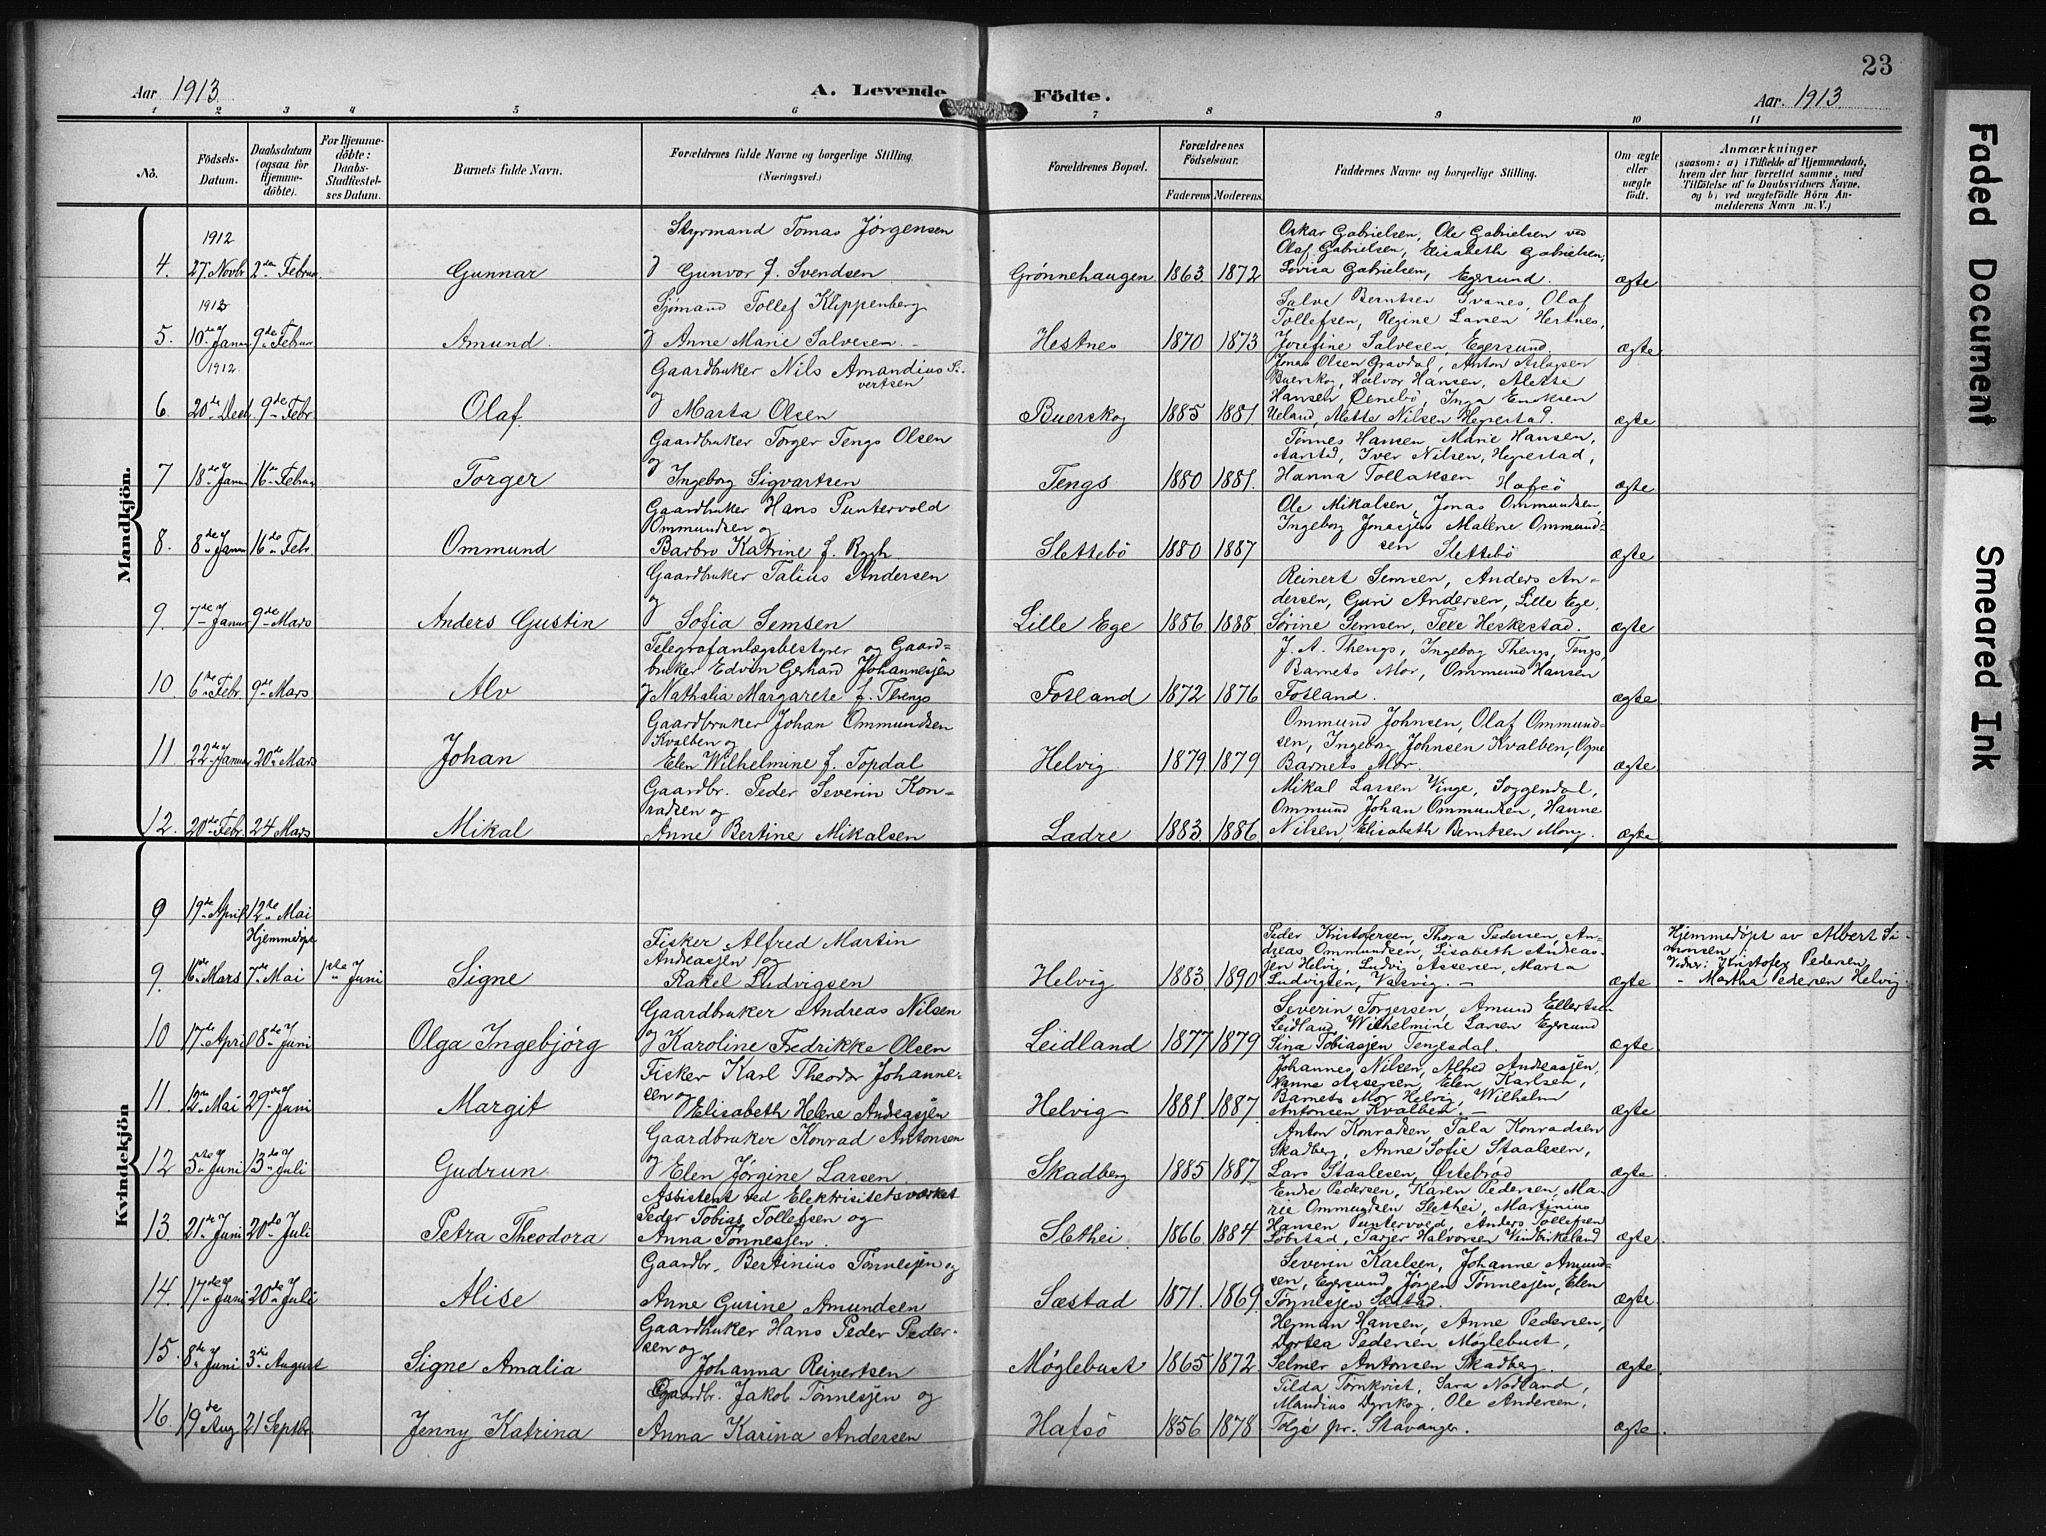 23
Aar 1913
A. Levende
Födte.
Aar. 1913
1 2 3 4 5 6 7 8 9 10 11
No.
Födsels-Datum.
Daabsdatum (ogsaa for Hjemmedöbte).
For Hjemmedöbte: Daabs-Stadfestelses Datum.
Barnets fulde Navn.
Forældrenes fulde Navne og borgerlige Stilling.
(Næringsvei.)
Forældrenes Bopæl.
Forældrenes Födselsaar.
Faderens Moderens
Faddernes Navne og borgerlige Stilling.
Om ægte eller uægte födt.
Anmærkninger
(saasom: a) i Tilfælde af Hjemmedaab, hvem der har forrettet samme, med Tilföielse af to Daabsvidners Navne, og b) ved uægtefödte Börn Anmelderens Navn m.V.)
Mandkjön.
1912
4. 27 Novbr 2den Februar Gunnar
Styrmand Tomas Jørgensen
og Gunvor f. Svendsen
Grønnehaugen 1863. 1872
Oskar Gabrielsen, Ole Gabrielsen ved
Olaf Gabrielsen, Elisabeth Gabrielsen,
Lovisa Gabrielsen, Egersund.
ægte
5. 10de Janu 9de Februar Amund.
Sjømand Tollef Klippenberg
og Anne Marie Salvesen
Hestnes 1870 1873
Salve Berntsen Svanes, Olaf
Tollefsen, Regine Larsen Hestnes,
Josefine Salvesen, Egersund.
ægte
1912.
6. 20de Decb. 9de Febr Olaf
Gaardbruker Nils Amandius Si-
vertsen
og Marta Olsen
Buerskog 1885 1881
Jonas Olsen Gravdal, Anton Aslagsen
Buerskog, Halvor Hansen, Alette
Ueland, Mette Nilsen Hegrestad.
ægte
7 18de Janu 16de Februar Torger
Gaardbruker Torger Tengs Olsen
og Ingeborg Sigvartsen
Tengs 1880 1881.
Tønnes Hansen, Marie Hansen,
Aarstad, Iver Nilsen, Hegrestad,
Hanna Tollaksen Hafsö
ægte
8. 8de Janu 16de Febr Ommund
Gaardbruker Hans Puntervold
Ommundsen og
Barbro Katrine f. Rygh
Slettebö 1880 1887
Ole Mikalsen, Jonas Ommundsen,
Ingeborg Jonassen Malene Ommund-
sen Slettebö
ægte
9. 7de Janu 9de Mars Anders Gustin
Gaardbruker Talius Andersen
og Sofia Semsen
Lille Ege 1886 1888.
Reinert Semsen, Anders An-
dersen, Guri Andersen, Lille Ege,
Sörine Semsen, Heskestad.
ægte
10 6te Febr. 9de Mars Alv
Telegrafanlægsbestyrer og Gaard-
bruker Edvin Gerhard Johannesjen
og Nathalia Margarete f. Thengs
Fotland 1872 1876
J. A. Thengs, Ingeborg Thengs, Tengs,
Barnets Mor, Ommund Hansen
Fotland.
ægte
11. 22de Janu 20de Mars Johan
Gaardbruker Johan Ommundsen
Kvalben og
Elen Wilhelmine f. Topdal
Helvig 1879 1879
Ommund Johnsen, Olaf Ommund-
sen, Ingeborg Johnsen Kvalben, Ogne
Barnets Mor.
ægte
12. 20de Febr. 24 Mars Mikal
Gaardbr. Peder Severin Kon-
radsen og
Anne Bertine Mikalsen
Lædre 1883. 1886
Mikal Larsen Vinge, Soggendal,
Ommund Johan Ommundsen, Hanne
Nilsen, Elisabeth Berntsen Mong.
ægte
Kvindekjön
9 19de April 12te Mai
Hjemmedöpt
9. 16de Mars 7de Mai 1ste Juni Signe
Fisker Alfred Martin
Andreasjen og
Rakel Ludvigsen
Helvig 1883. 1890
Peder Kristofersen, Thora Pedersen, An-
dreas Ommundsen, Lisabeth Andreas-
jen Helvig, Ludvig Assersen, Marta
Ludvigsen,
ægte
Hjemmedöpt av Albert Si-
monsen
Vidner: Kristofer Pedersen,
- Martha Pedersen Helvig.
10 17de April 8de Juni Olga Ingebjörg
Gaardbruker Andreas Nilsen
og Karoline Fredrikke Olsen
Leidland 1877 1879
Severin Torgersen, Amund Ellertsen
Leidland, Wilhelmine Larsen Egersund
Sina Tobiasjen Tengesdal.
ægte.
11. 12te Mai 29de Juni Margit
Fisker Karl Theodor Johanne-
sen og
Elisabeth Helene Andreasjen
Helvig 1881. 1887.
Johannes Nilsen, Alfred Andreasjen,
Hanne Assersen, Elen Karlsen,
Barnets Mor Helvig, Wilhelm
Antonsen Kvalben.
ægte
12 5te Juni 13de Juli Gudrun
Gaardbruker Konrad Antonsen
og Elen Jörgine Larsen
Skadberg 1885 1887
Anton Konradsen, Tala Konradsen
Skadberg, Anne Sofie Staalesen,
Lars Staalesen, Østebröd
ægte.
13. 21de Juni 20de Juli Petra Theodora
Assistent ved Elektrisitetsværket
Peder Tobias Tollefsen og
Anna Tønnesjen.
Slethei 1866 1884.
Endre Pedersen, Karen Pedersen, Ma-
rie Ommundsen Slethei, Martinius
Hansen Puntervold, Anders Tollefsen
Tarjer Halvorsen Vindbirkeland
ægte.
14. 17de Juni 20de Juli Alise
Gaardbr. Bertinius Tønnesjen og
Anne Gurine Amundsen
Sæstad 1871. 1869
Severin Karlsen, Johanne Amund-
sen, Egersund, Jørgen Tønnesjen, Elen
Tønnesjen Sæstad.
ægte.
15. 8de Juni 3die August Signe Amalia
Gaardbruker Hans Peder Peder-
sen og
Johanna Reinertsen
Møglebust 1865 1872
Herman Hansen, Anne Pedersen,
Dortea Pedersen Møglebust,
Selmer Antonsen Skadberg.
ægte.
16. 19de Aug. 21 Septbr. Jenny Katrina
Gaardbr. Jakob Tønnesjen og
Anna Karina Andersen
Hafsö 1856 1878
Tilda Törnkvist, Sara Nodland,
Ole Andersen,
pr. Stavanger.
ægte.
Faded Document
Smeared Ink